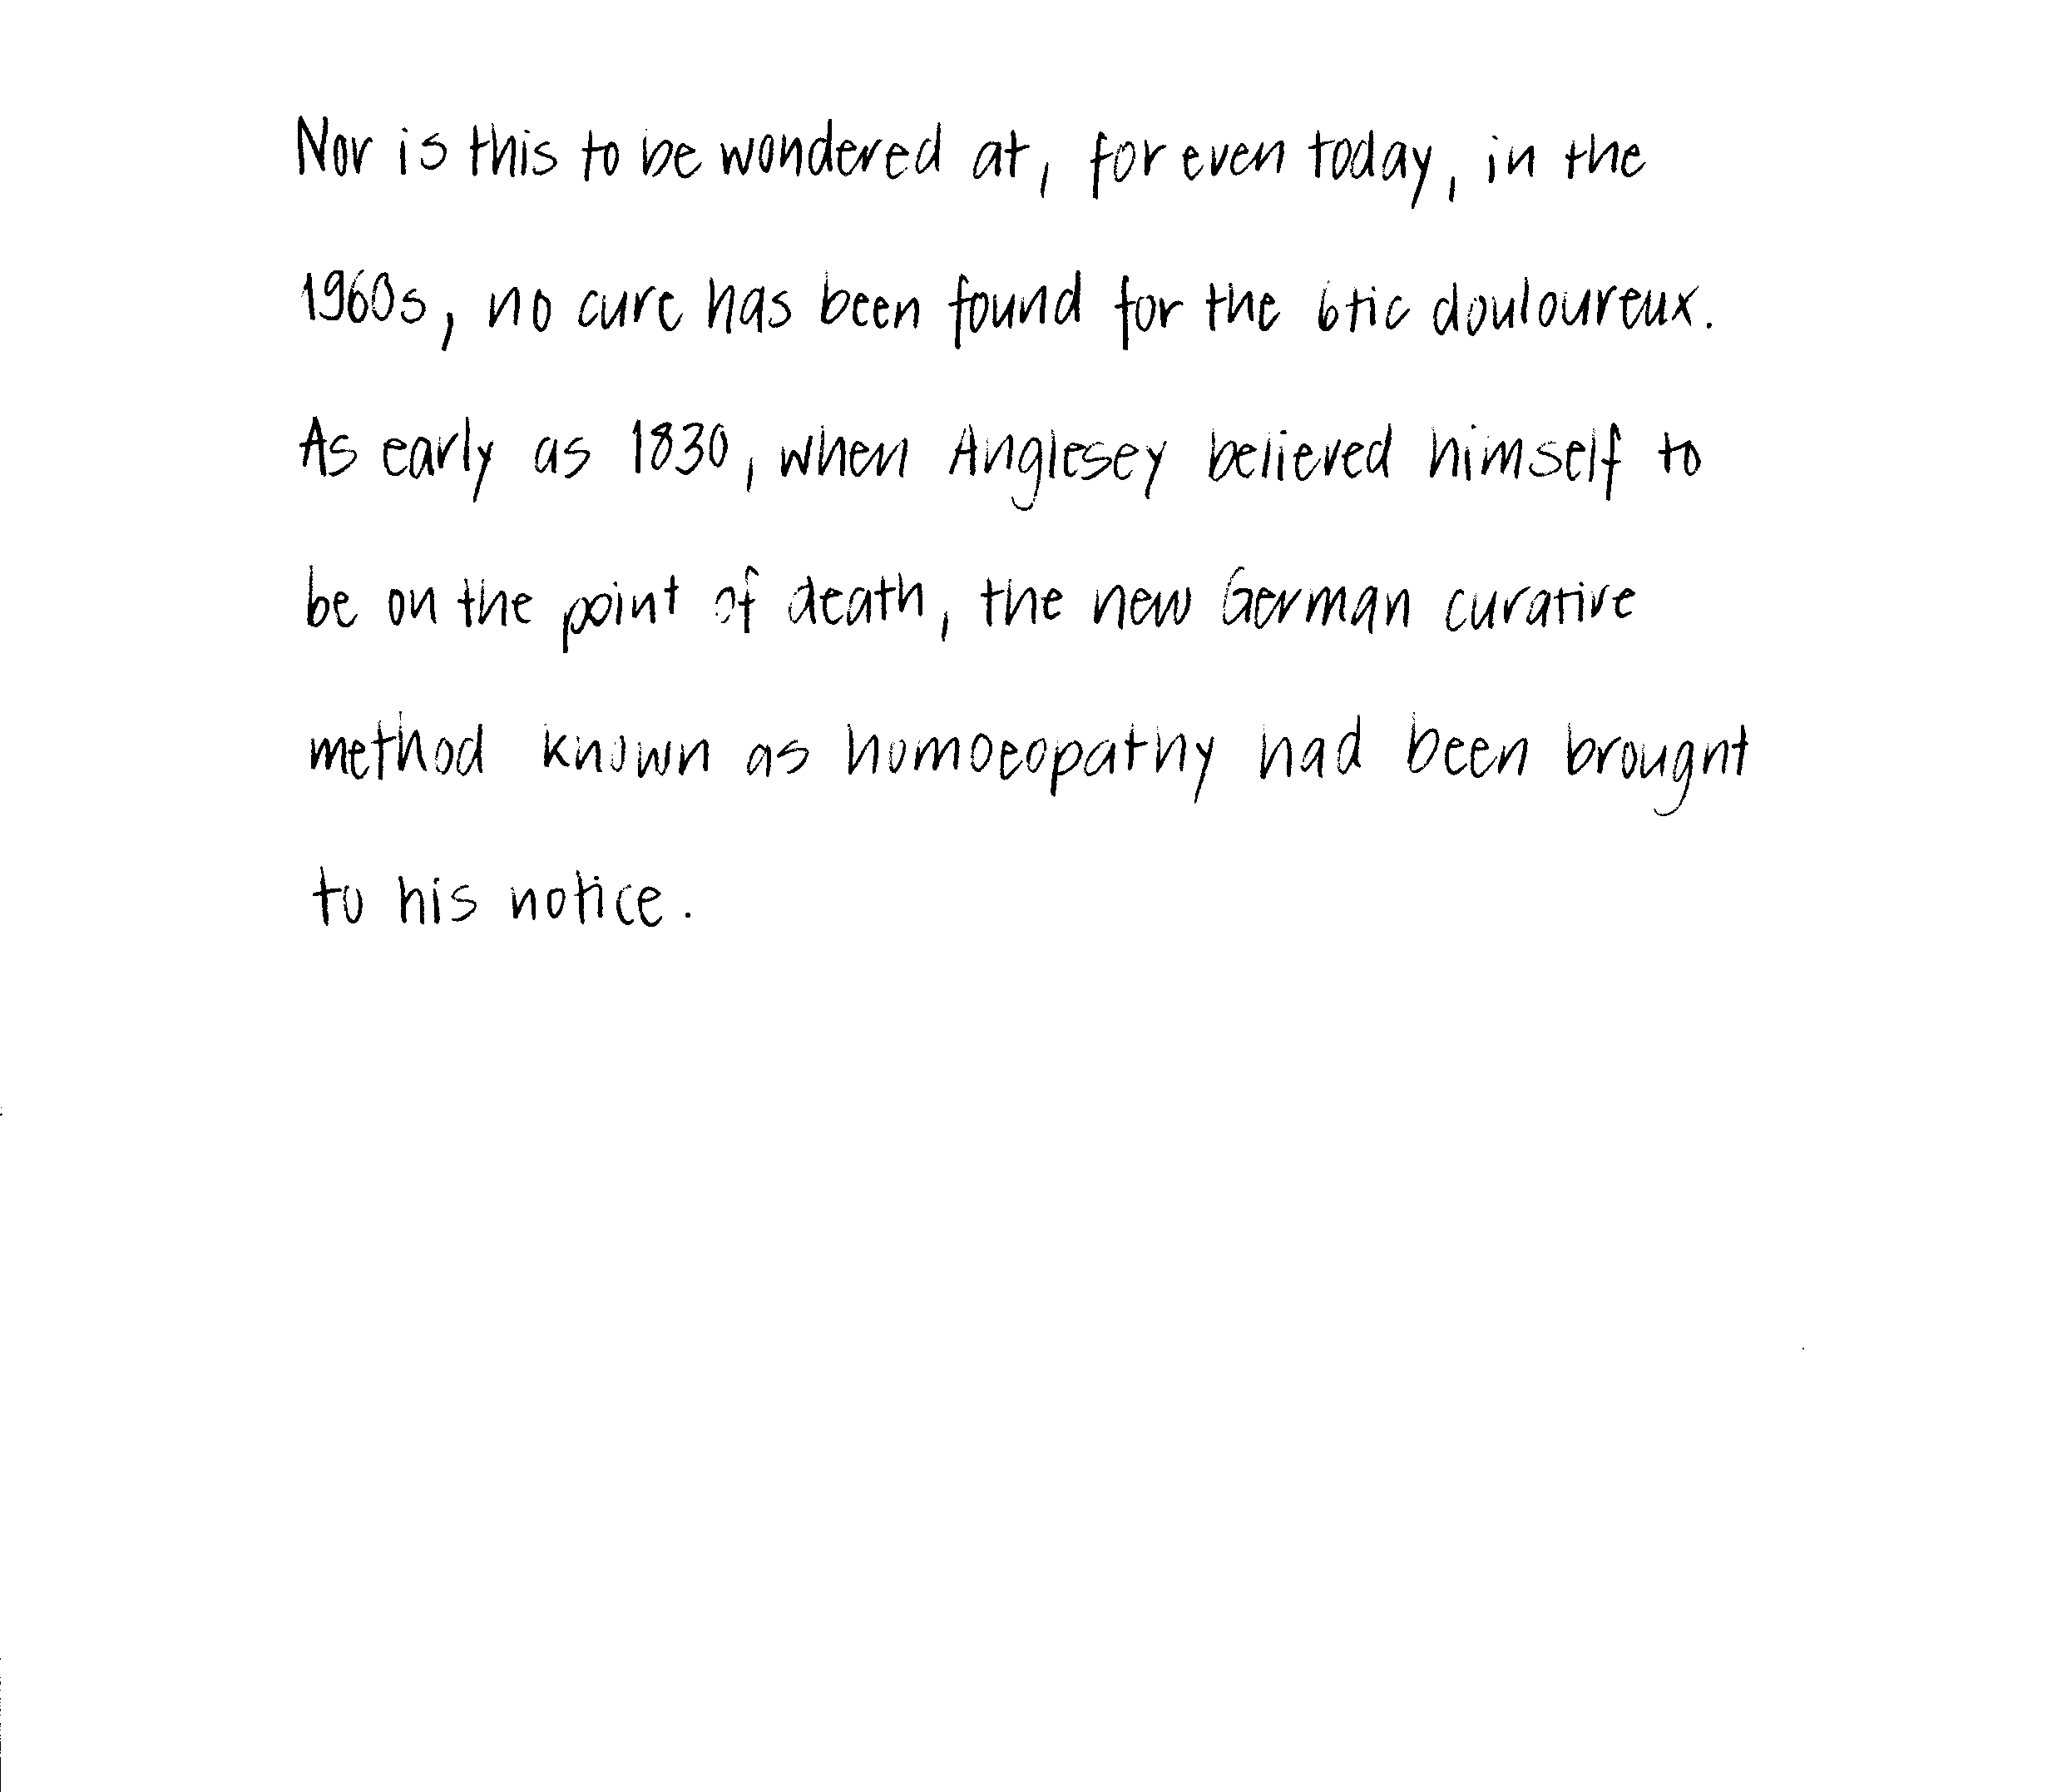 Nor is this to be wondered at, for even today, in the
1960s, no cure has been found for the 6tic douloureux.
As early as 1830, when Anglesey believed himself to
be on the point of death, the new German curative
method known as homoeopathy had been brought
to his notice.